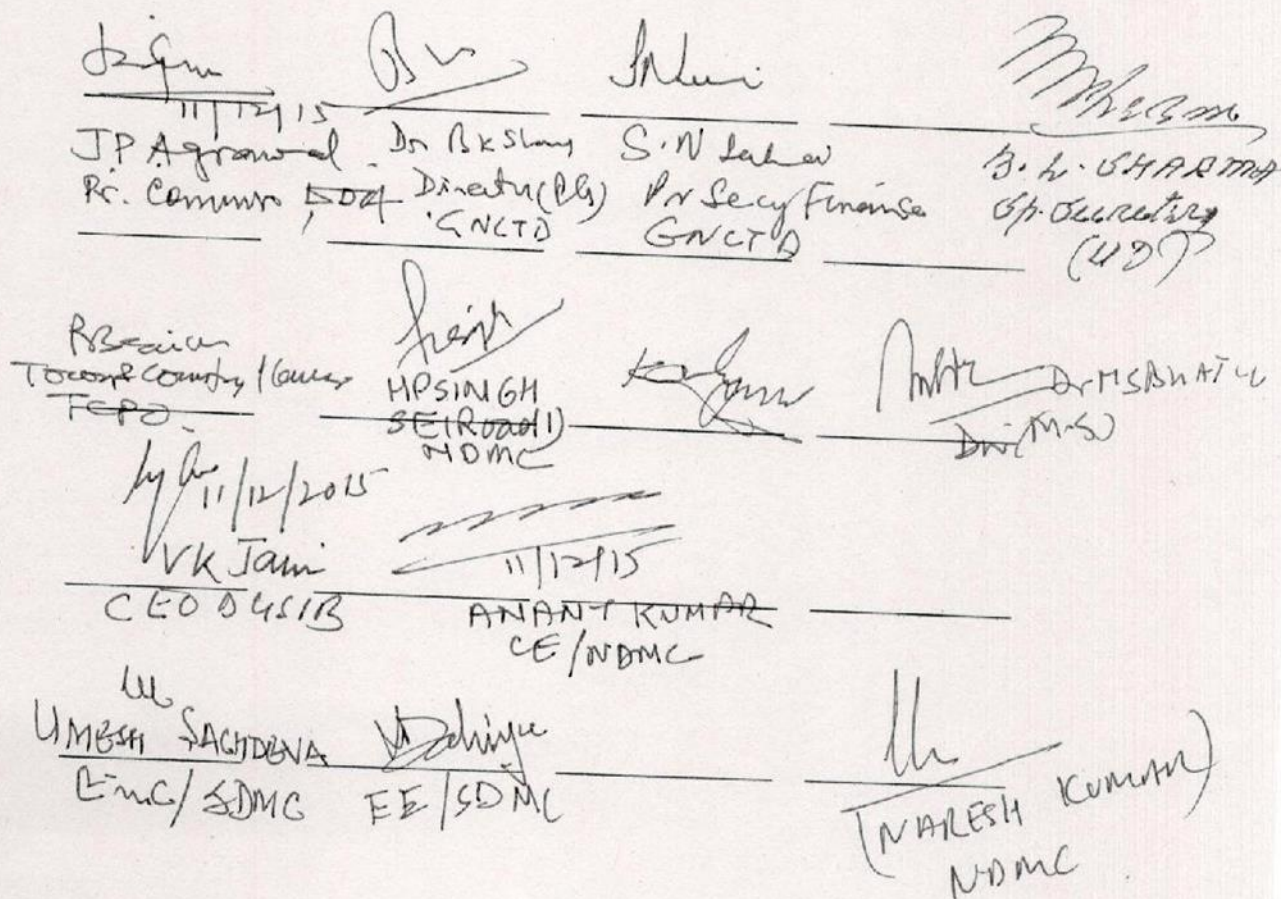 11/12/15
JP Agrawal
Pr. Commr DDA
Dr BK
Director (Plg)
GNCTD
S.N Sahai
Pr Secy Finance
GNCTD
B. L. SHARMA
Sp. Secretary
(UD)
Town & Country
TCPO
HPSINGH
SE (Road I)
NDMC
Dr MS
11/12/2015
VK Jain
CEO DUSIB
11/12/15
ANANT KUMAR
CE/NDMC
UMESH SACHDEVA
EinC/SDMC
Dahiya
EE/SDMC
(NARESH KUMAR)
NDMC